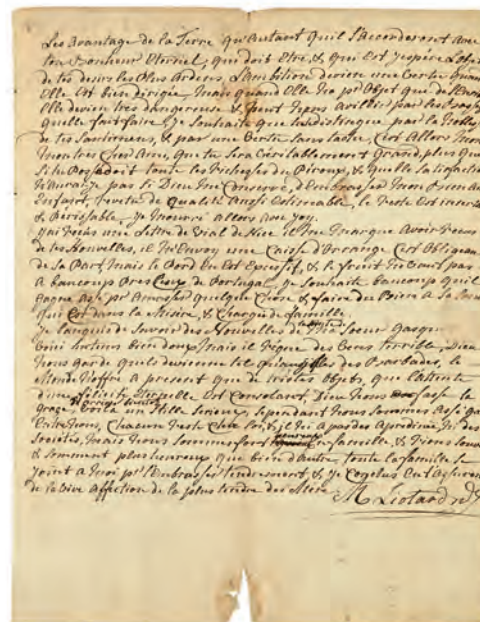 Les Avantage de la Terre qu'Autant quil S'Accorderont Avec
ton Bonheur Eternel, qui doit Etre, & qui Est J'espére L'objet
de tes desirs les Plus Ardens, L'ambition devien une Vertu quand
Elle Est bien dirigée, Mais quand Elle N'a pr Objet que de
Elle devien tres dangereuse & peut Nous Avillir par les
quelle fait faire, Je Souhaite que tu te distingue par la Nobles
de tes Santimens, & par une Vertu sans tache, C'est Allors Mon
Mon tres Cher Ami, que tu Sera Véritablement grand, plus que
Si tu Possedoit toute les Richesses du Pérou, & quelle Satisfaction
N'aurai Je pas Si Dieu Me Conserve, d'Embrasser Mon
Enfant, revetu de qualité Aussi Estimable, le reste Est incertain
& Périssable, Je Mouré allors Avec Joy.
J'ai recus une Lettre de Vial de Nice il Me Marque Avoir recus
de tes Nouvelles, il M'Envoy une Caisse d'Orrange C'est Obligean
de Sa Part, Mais le Port En Est Excessif, & le fruit Ne Vaut pas
A baucoups Pres Ceux de Portugal, Je Souhaite baucoups quil
gagne Assé pr Amasser quelque Chose & faire du Bien A Sa
qui Est dans la Misére, & Chargée de famille.
Je languis de Savoir des Nouvelles de Soeur
hivers bien doux Mais il Règne des terrible, Dieu
Nous garde quele devienne tel des Barbades, le
Monde N'offre A présent que de tristes Objets, que l'attente
d'une félicité Eternelle Est Consolant, Dieu Nous fasse la
grace, Voila un Stille Serieux, Sependant Nous Sommes Assé gai
Entre Nous, Chacun reste Ches Soi, & Je N'ai pas des Apredine Ni des
Sociétés, Mais Nous Sommes fort heureux En famille, & Vivons
& Sommemt plus heureux que bien d'Autre, toute la famille Se
Joint A Moi pr t'Embrasser tendrement, & Je Conclus En t'Assuran
de la Vive Affection de la plus tendre des Mère
M Liotard